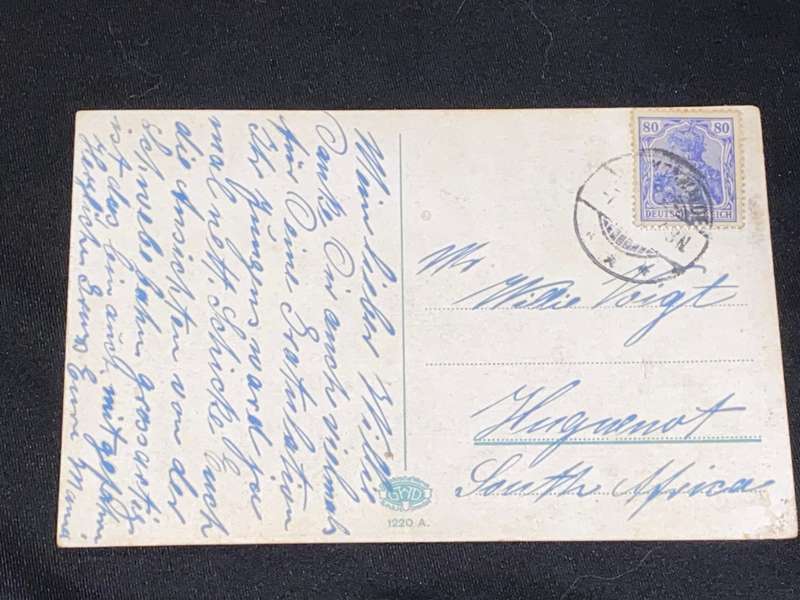 Mein lieber Willi
Danke Dir auch vielmals
für Deine Gratulation
Ihr Jungens ward ja
mal nett. Schicke Euch
die Ansichten von der
Schwebebahn grossartig
ist das bin auch mitgefahren
Herzlichen Gruss Eure Mama
80 80
DEUTSCHES REICH
Mr Willie Voigt
Huguenot
South Africa
GWD
1220 A.